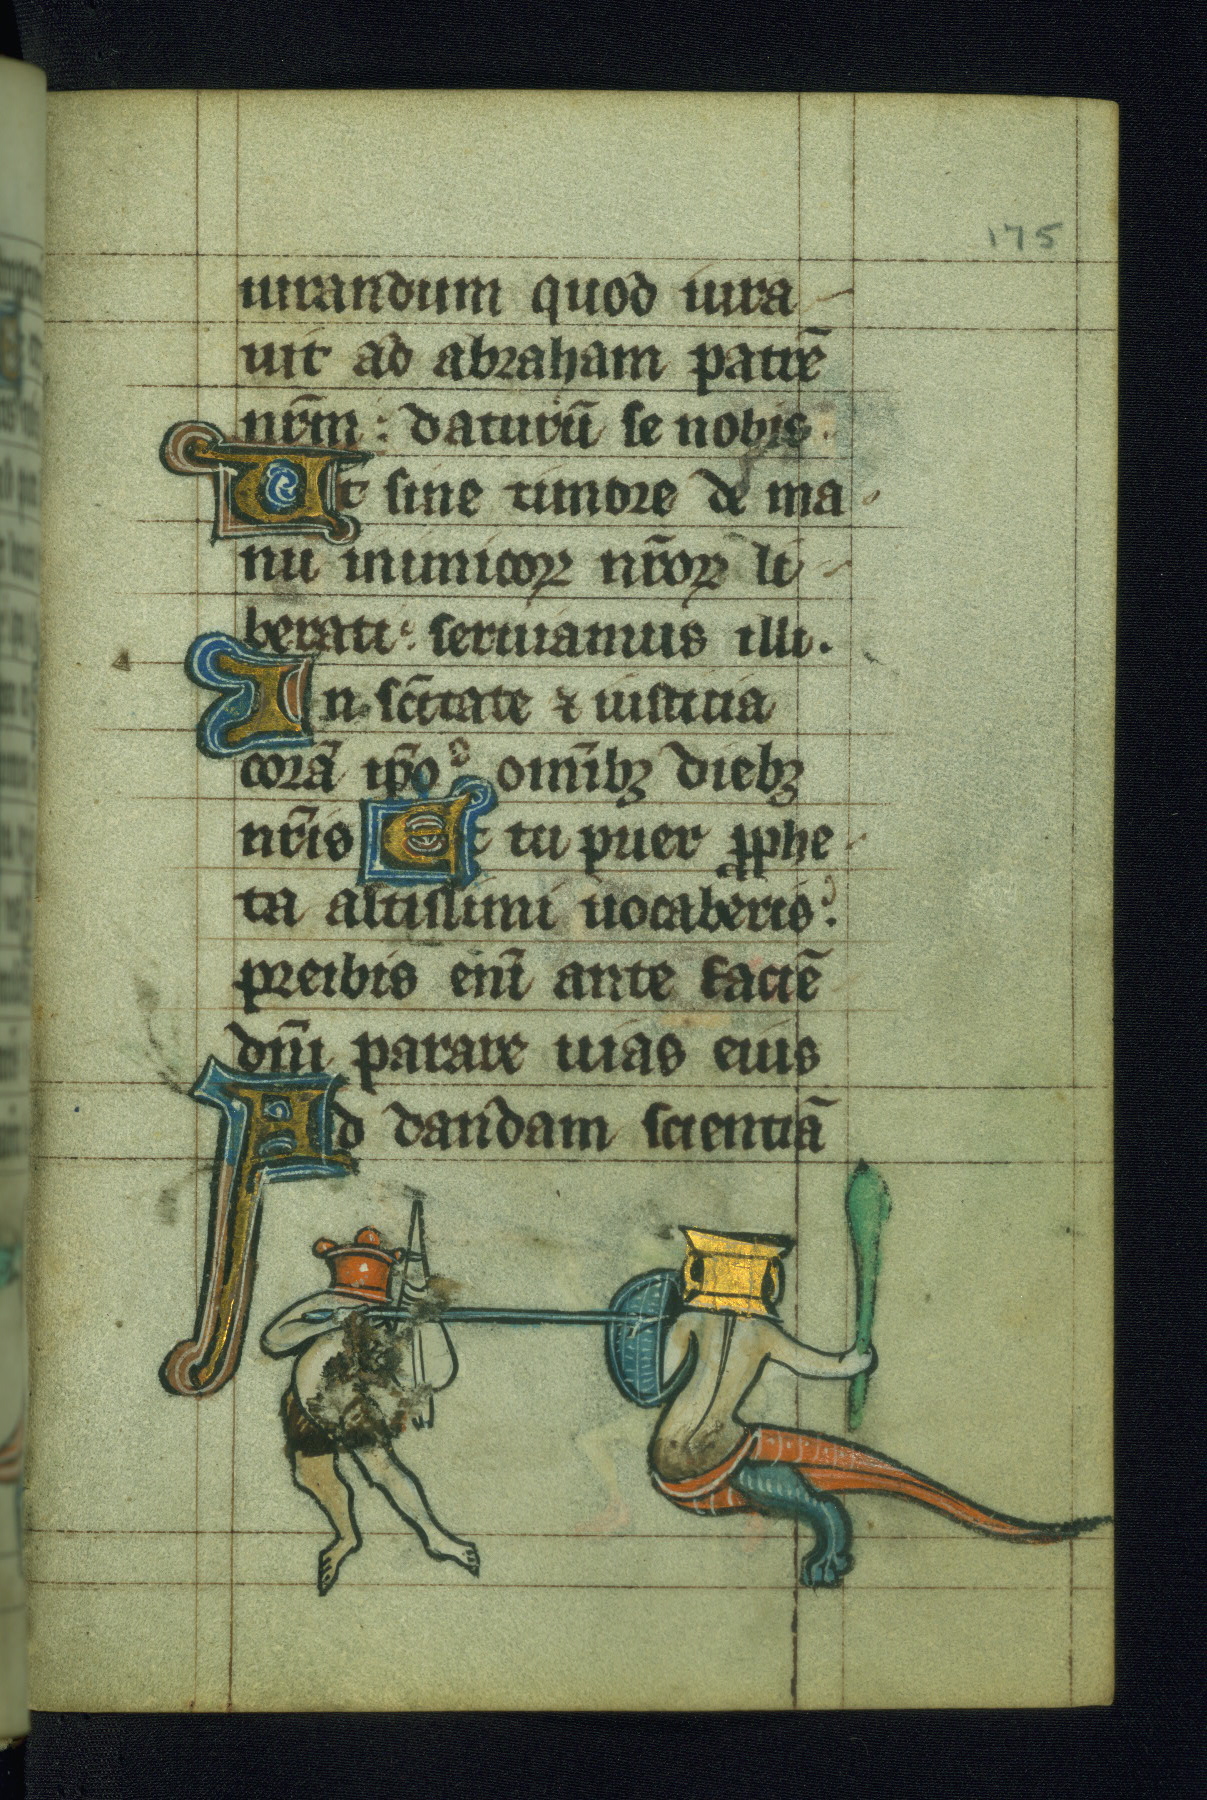 175
iurandum quod iura
uit ad abraham patrē
nr̄m : daturū se nobis.
Ut sine timore de ma
nu inimicoꝝ nr̄oꝝ li
berati : seruiamus illi.
In sc̄itate ⁊ iusticia
corā ip̄o : omībꝫ diebꝫ
nr̄is Et tu puer ꝓphe
ta altissimi uocaberis :
preibis enī ante faciē
dn̄i parare uias eius
Ad dandam scientiā